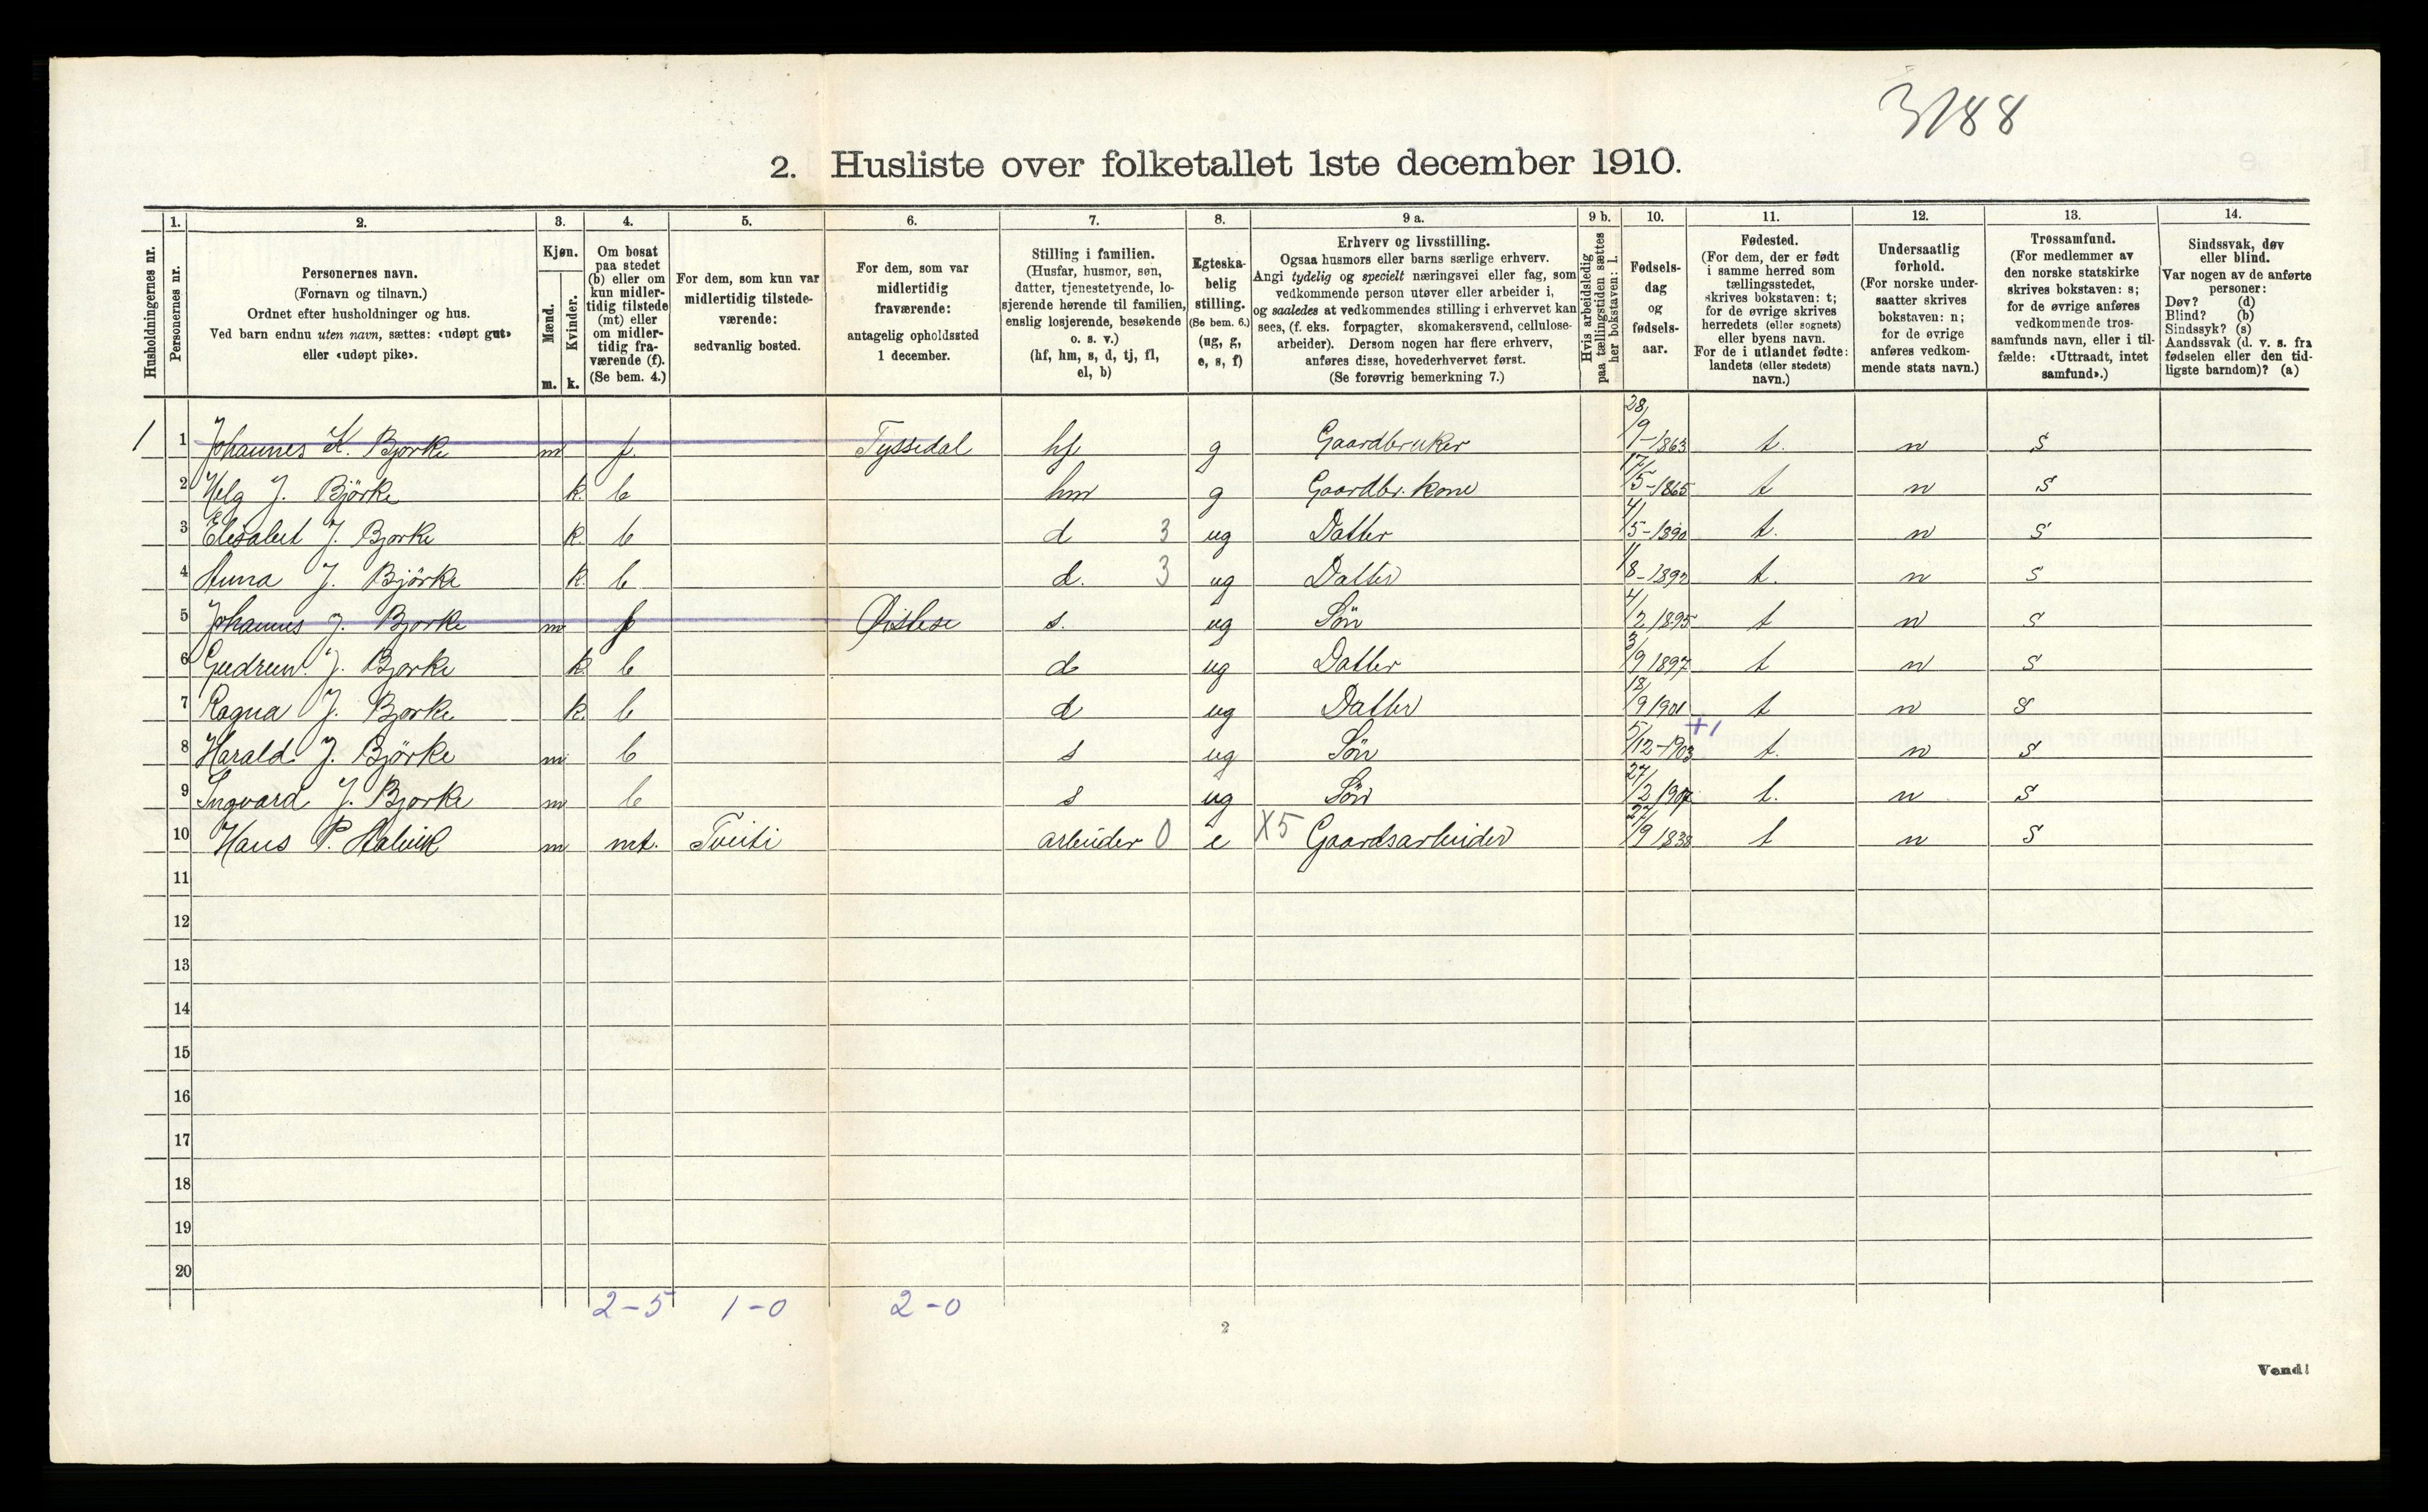 3/88
2. Husliste over folketallet 1ste december 1910.
Husholdningernes nr.
1. Personernes nr.
2. Personernes navn.
(Fornavn og tilnavn.)
Ordnet efter husholdninger og hus.
Ved barn endnu uten navn, sættes: «udøpt gut»
eller «udøpt pike».
3. Kjøn.
Mænd. m.
Kvinder. k.
4. Om bosat
paa stedet
(b) eller om
kun midler-
tidig tilstede
(mt) eller
om midler-
tidig fra-
værende (f).
(Se bem. 4.)
5. For dem, som kun var
midlertidig tilstede-
værende:
sedvanlig bosted.
6. For dem, som var
midlertidig
fraværende:
antagelig opholdssted
1 december.
7. Stilling i familien.
(Husfar, husmor, søn,
datter, tjenestetyende, lo-
sjerende hørende til familien,
enslig losjerende, besøkende
o. s. v.)
(hf, hm, s, d, tj, fl,
el, b)
8. Egteska-
belig
stilling.
(Se bem. 6.)
(ug, g,
e, s, f)
9 a. Erhverv og livsstilling.
Ogsaa husmors eller barns særlige erhverv.
Angi tydelig og specielt næringsvei eller fag, som
vedkommende person utøver eller arbeider i,
og saaledes at vedkommendes stilling i erhvervet kan
sees, (f. eks. forpagter, skomakersvend, cellulose-
arbeider). Dersom nogen har flere erhverv,
anføres disse, hovederhvervet først.
(Se forøvrig bemerkning 7.)
9 b. Hvis arbeidsledig
paa tællingstiden sættes
her bokstaven: l.
10. Fødsels-
dag
og
fødsels-
aar.
11. Fødested.
(For dem, der er født
i samme herred som
tællingsstedet,
skrives bokstaven: t;
for de øvrige skrives
herredets (eller sognets)
eller byens navn.
For de i utlandet fødte:
landets (eller stedets)
navn.)
12. Undersaatlig
forhold.
(For norske under-
saatter skrives
bokstaven: n;
for de øvrige
anføres vedkom-
mende stats navn.)
13. Trossamfund.
(For medlemmer av
den norske statskirke
skrives bokstaven: s;
for de øvrige anføres
vedkommende tros-
samfunds navn, eller i til-
fælde: «Uttraadt, intet
samfund».)
14. Sindssvak, døv
eller blind.
Var nogen av de anførte
personer:
Døv? (d)
Blind? (b)
Sindssyk? (s)
Aandssvak (d. v. s. fra
fødselen eller den tid-
ligste barndom)? (a)
1 1 Johannes K. Bjorke m f Tyssedal hf g Gaardbruker 28/9-1863 t. n s
2 Helg J. Björke k. b hm g Gaardbr. kone 17/5-1865 t n s
3 Elisabet J. Bjorke k. b d 3 ug Datter 4/5-1890 t. n s
4 Anna J. Björke k. b d. 3 ug Datter 1/8-1892 t. n s
5 Johannes J. Bjorke m f Østese s. ug Sön 4/2 1895 t n s
6 Gudrun J. Bjorke k b d ug Datter 3/9 1897 t n s
7 Ragna J. Bjorke k. b d ug Datter 18/9 1901 t n s
8 Harald J. Björke m b s ug Sön 5/12-1903 +1 t. n s
9 Ingvard J. Bjorke m b s ug Sön 27/2 1907 t. n s
10 Hans P. m mt. Tveiti arbeider 0 e X5 Gaardsarbeider 27/9 1838 t n s
11
12
13
14
15
16
17
18
19
20
2-5 1-0 2-0
2
Vend!